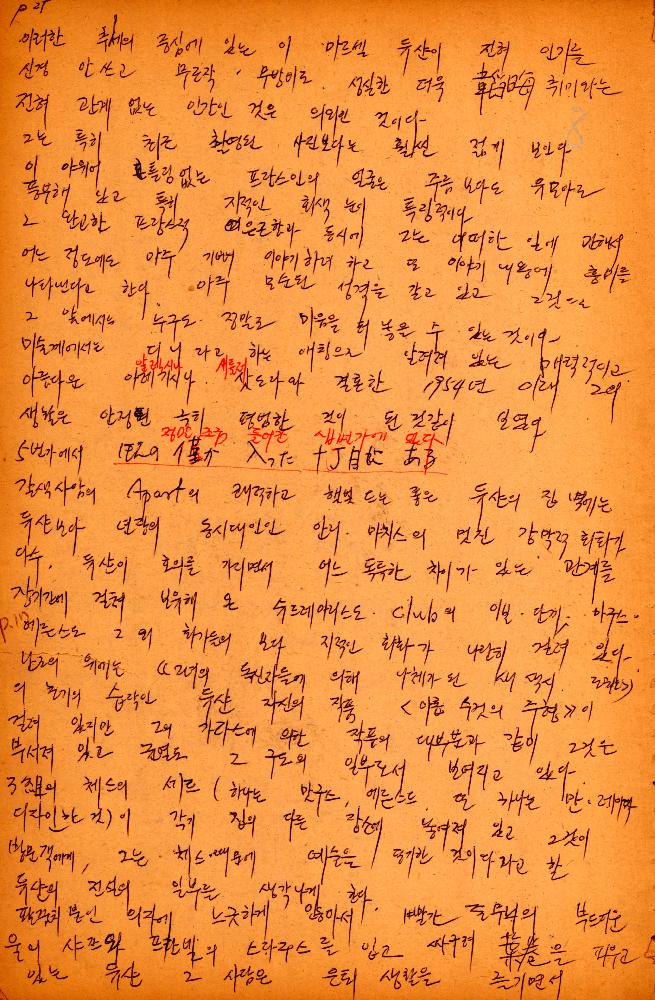 p 21
이러한 추세의 중심에 있는 이 마르셀 듀샨이 전혀 인기를
신경 안 쓰고 무른작, 무방이로 성실한 더욱 취미와는
전혀 관계 없는 인간인 것은 의외인 것이다
그는 특히 최근 촬영된 사진보다는 훨씬 젊게 보인다
이 야위어 틀림없는 프랑스인의 얼굴은 주름보다도 유모아로
풍부해 있고 특히 지적인 회색 눈이 특징적이다
그 완고한 프랑스적 은근함과 동시에 그는 어떠한 일에 관해서
어느 정도에도 아주 기뻐 이야기하려 하고 또 이야기 내용에 흥미를
나타낸다고 한다. 아주 모순된 성격을 갖고 있고 그것은
그 앞에서는 누구도 정말로 마음을 터 놓을 수 있는 것이다
미술계에서는 티니 라고 하는 애칭으로 알려져 있는 매력적이고
알렉시나 새틀러
아름다운 아레기시나. 삿도라와 결혼한 1954년 이래 그의
생활은 안정된 극히 평범한 것이 된 것같이 보였다
정오 조금 들어온 십번가에 있다
5번가에서 僅か 入った 十丁目に ある
갈색사암의 Apart의 쾌적하고 햇빛 드는 좋은 듀샨의 집 벽에는
듀샨보다 년장의 동시대인인 안리. 마치스의 멋진 강박적 회화가
다수. 듀샨이 호의를 가지면서 어느 독특한 차이가 있는 관계를
장기간에 걸쳐 보유해 온 슈르레아리스도. Club의 이브. 탄끼. 마구스.
p.117
에른스도 그 외 화가들의 보다 지적인 회화가 나란히 걸려 있다.
난로의 위에는 《그녀의 독신자들에 의해 나체가 된 새색시.
의 초기의 습작인 듀샨 자신의 작품 <아홉 숫것의 주형》이
걸려 있지만 그의 가라스에 의한 작품의 대부분과 같이 그것은
부서져 있고 균열도 그 구도의 일부로서 보여지고 있다.
3조의 체스의 세트 (하나는 맛구스, 에른스도, 또 하나는 만. 레이가
디자인한 것)이 각기 집의 다른 장소에 놓여져 있고 그것이
방문객에게, 그는 체스 때문에 예술을 포기한 것이다라고 한
듀샨의 전설의 일부를 생각나게 한다.
의자에 느긋하게 앉아서 빨간 줄무늬의 부드러운
울의 샤쯔와 프란넬의 스라구스를 입고 싸구려 을 피우고
있는 듀샨 그 사람은 은퇴 생활을 즐기면서